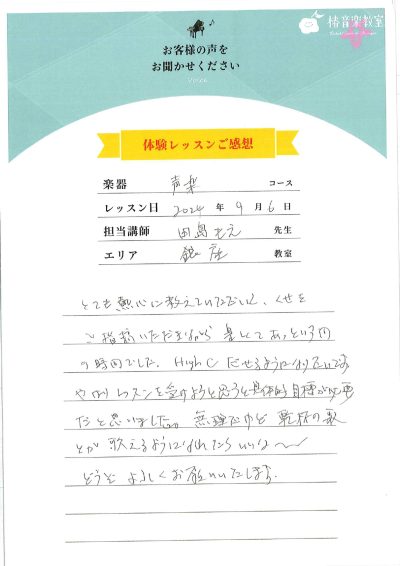 椿音楽教室
お客様の声を
お聞かせください
Voice
体験レッスンご感想
楽器 声楽 コース
レッスン日 2024 年 9 月 6 日
担当講師 田島もえ 先生
エリア 銀座 教室
とても熱心に教えていただいて、くせを
ご指摘いただきながら 楽しくてあっという間
の時間でした。High C だせるようになりたいです
やはりレッスンを受けようと思うと具体的目標が必要
だと思いました。無理せずと 乾杯の歌
とか 歌えるようになれたらいいな〜
どうぞ よろしくお願いいたします.